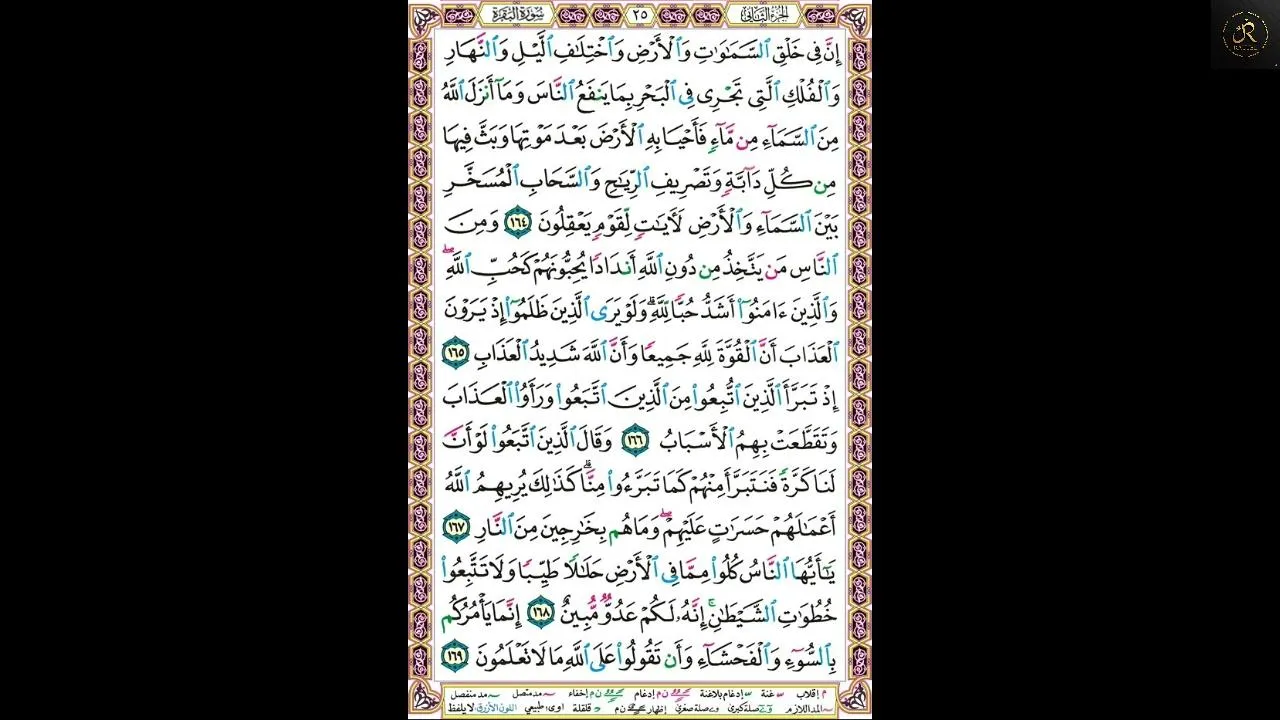 الجزء الثاني ٢٥ سورة البقرة
إِنَّ فِي خَلْقِ ٱلسَّمَٰوَٰتِ وَٱلْأَرْضِ وَٱخْتِلَٰفِ ٱلَّيْلِ وَٱلنَّهَارِ
وَٱلْفُلْكِ ٱلَّتِي تَجْرِي فِي ٱلْبَحْرِ بِمَا يَنفَعُ ٱلنَّاسَ وَمَآ أَنزَلَ ٱللَّهُ
مِنَ ٱلسَّمَآءِ مِن مَّآءٍ فَأَحْيَا بِهِ ٱلْأَرْضَ بَعْدَ مَوْتِهَا وَبَثَّ فِيهَا
مِن كُلِّ دَآبَّةٍ وَتَصْرِيفِ ٱلرِّيَٰحِ وَٱلسَّحَابِ ٱلْمُسَخَّرِ
بَيْنَ ٱلسَّمَآءِ وَٱلْأَرْضِ لَأَيَٰتٍ لِّقَوْمٍ يَعْقِلُونَ ١٦٤ وَمِنَ
ٱلنَّاسِ مَن يَتَّخِذُ مِن دُونِ ٱللَّهِ أَندَادًا يُحِبُّونَهُمْ كَحُبِّ ٱللَّهِ ۖ
وَٱلَّذِينَ ءَامَنُوٓا۟ أَشَدُّ حُبًّا لِّلَّهِ ۗ وَلَوْ يَرَى ٱلَّذِينَ ظَلَمُوٓا۟ إِذْ يَرَوْنَ
ٱلْعَذَابَ أَنَّ ٱلْقُوَّةَ لِلَّهِ جَمِيعًا وَأَنَّ ٱللَّهَ شَدِيدُ ٱلْعَذَابِ ١٦٥
إِذْ تَبَرَّأَ ٱلَّذِينَ ٱتُّبِعُوا۟ مِنَ ٱلَّذِينَ ٱتَّبَعُوا۟ وَرَأَوُا۟ ٱلْعَذَابَ
وَتَقَطَّعَتْ بِهِمُ ٱلْأَسْبَابُ ١٦٦ وَقَالَ ٱلَّذِينَ ٱتَّبَعُوا۟ لَوْ أَنَّ
لَنَا كَرَّةً فَنَتَبَرَّأَ مِنْهُمْ كَمَا تَبَرَّءُوا۟ مِنَّا ۗ كَذَٰلِكَ يُرِيهِمُ ٱللَّهُ
أَعْمَٰلَهُمْ حَسَرَٰتٍ عَلَيْهِمْ ۖ وَمَا هُم بِخَٰرِجِينَ مِنَ ٱلنَّارِ ١٦٧
يَٰٓأَيُّهَا ٱلنَّاسُ كُلُوا۟ مِمَّا فِي ٱلْأَرْضِ حَلَٰلًا طَيِّبًا وَلَا تَتَّبِعُوا۟
خُطُوَٰتِ ٱلشَّيْطَٰنِ ۚ إِنَّهُۥ لَكُمْ عَدُوٌّ مُّبِينٌ ١٦٨ إِنَّمَا يَأْمُرُكُم
بِٱلسُّوٓءِ وَٱلْفَحْشَآءِ وَأَن تَقُولُوا۟ عَلَى ٱللَّهِ مَا لَا تَعْلَمُونَ ١٦٩
م إقلاب غنة إدغام بلاغنة ن م إدغام ن م إخفاء مد متصل مد منفصل
المد اللازم صلة كبرى صلة صغرى إظهار ن م قلقلة اوى طبيعي اللون الأزرق لا يلفظ